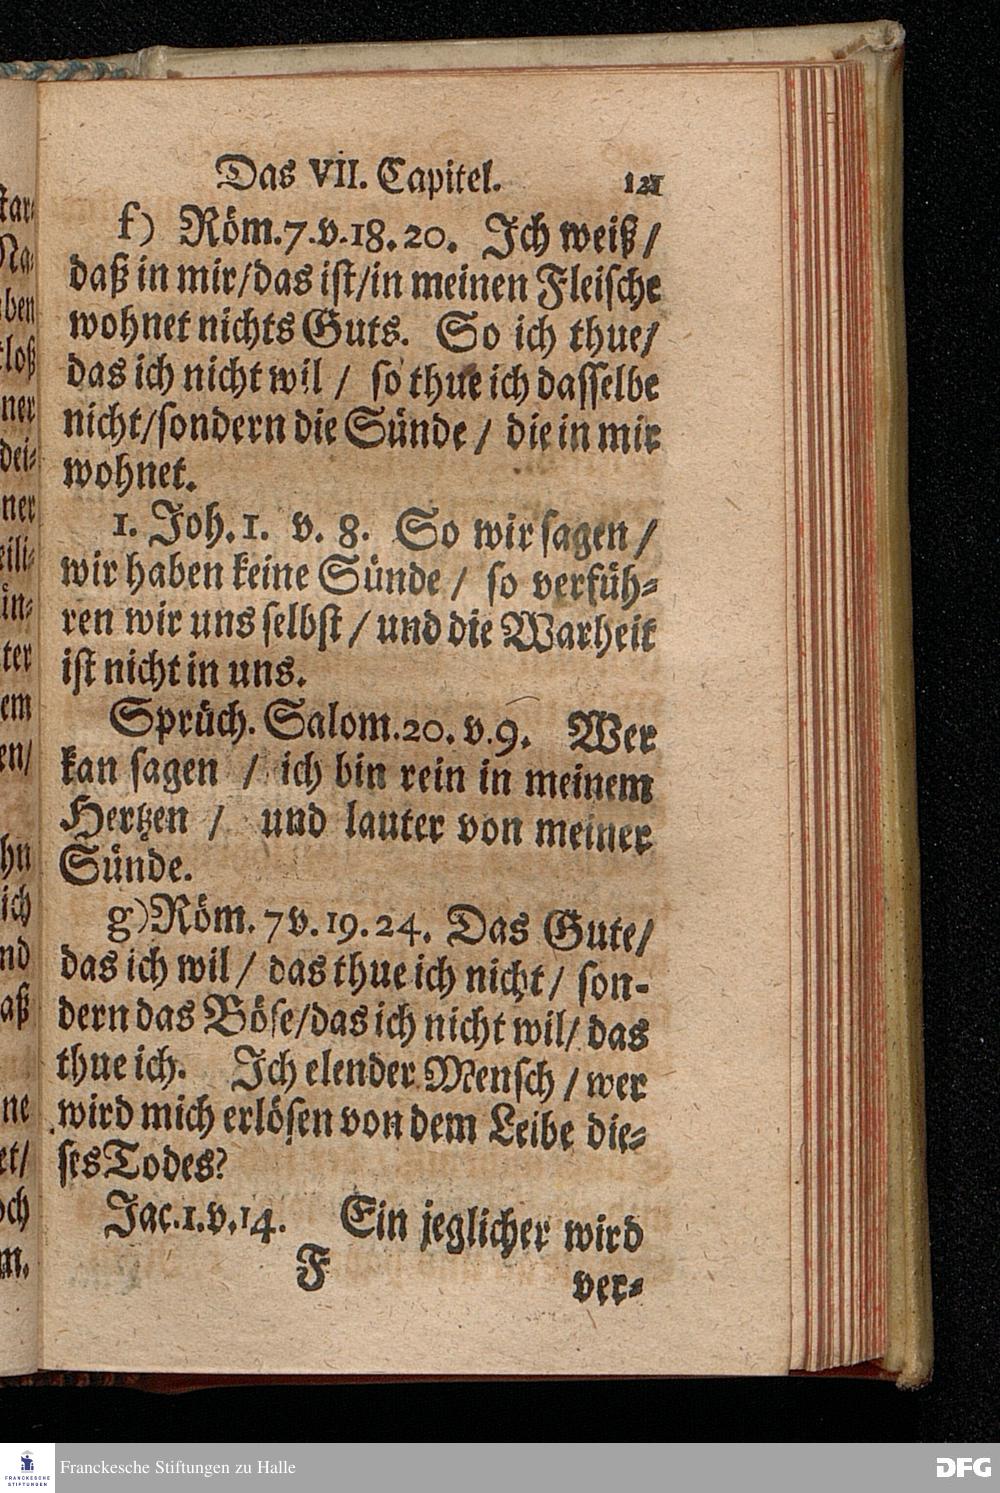 Das VII. Capitel. 121
f) Röm.7.v.18.20. Ich weiß /
daß in mir/das ist/in meinen Fleische
wohnet nichts Guts. So ich thue/
das ich nicht wil / so thue ich dasselbe
nicht/sondern die Sünde / die in mir
wohnet.
1. Joh.1. v. 8. So wir sagen /
wir haben keine Sünde / so verfüh-
ren wir uns selbst / und die Warheit
ist nicht in uns.
Sprüch. Salom.20. v.9. Wer
kan sagen / ich bin rein in meinem
Hertzen / und lauter von meiner
Sünde.
g)Röm. 7v.19.24. Das Gute/
das ich wil / das thue ich nicht / son-
dern das Böse/das ich nicht wil/ das
thue ich. Ich elender Mensch / wer
wird mich erlösen von dem Leibe die-
ses Todes?
Jac.1.v.14. Ein jeglicher wird
F ver-
Franckesche Stiftungen zu Halle
FRANCKESCHE
STIFTUNGEN
DFG